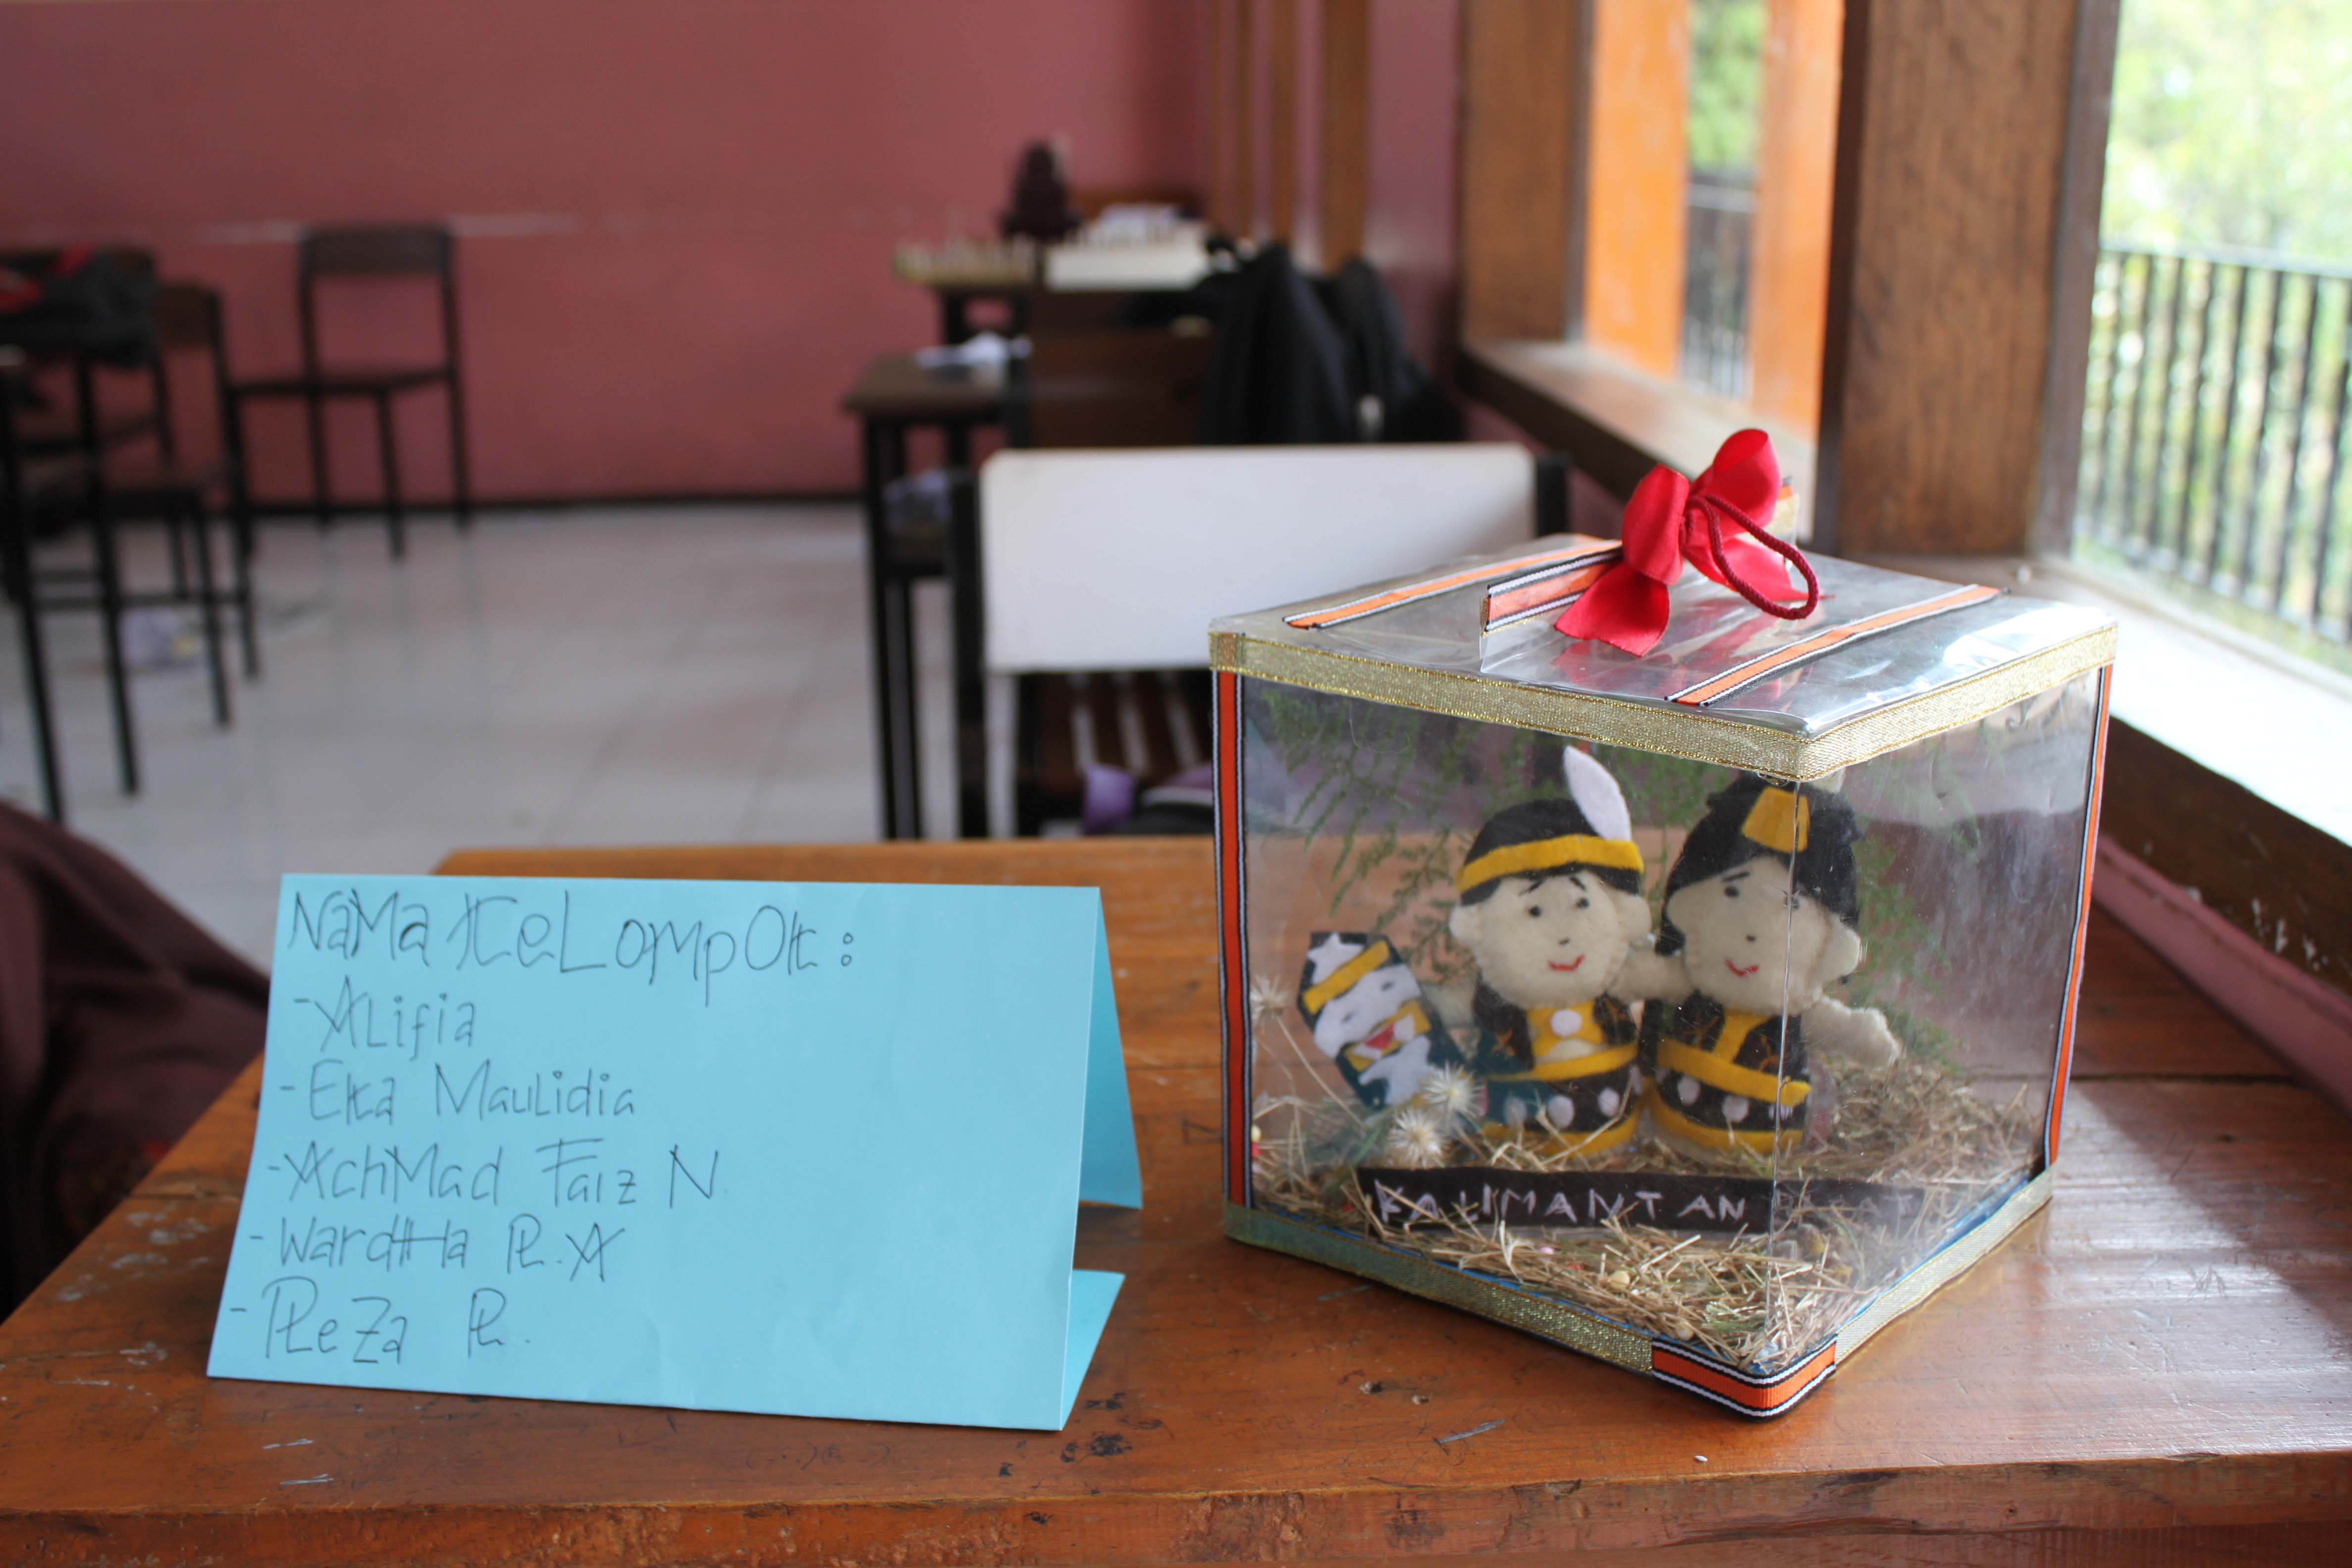 NaMa KeLompok :
- ALifia
- Eka MauLidia
- AchMad Faiz N.
- WardHa R.A
- ReZa R.
KALIMANTAN BARAT